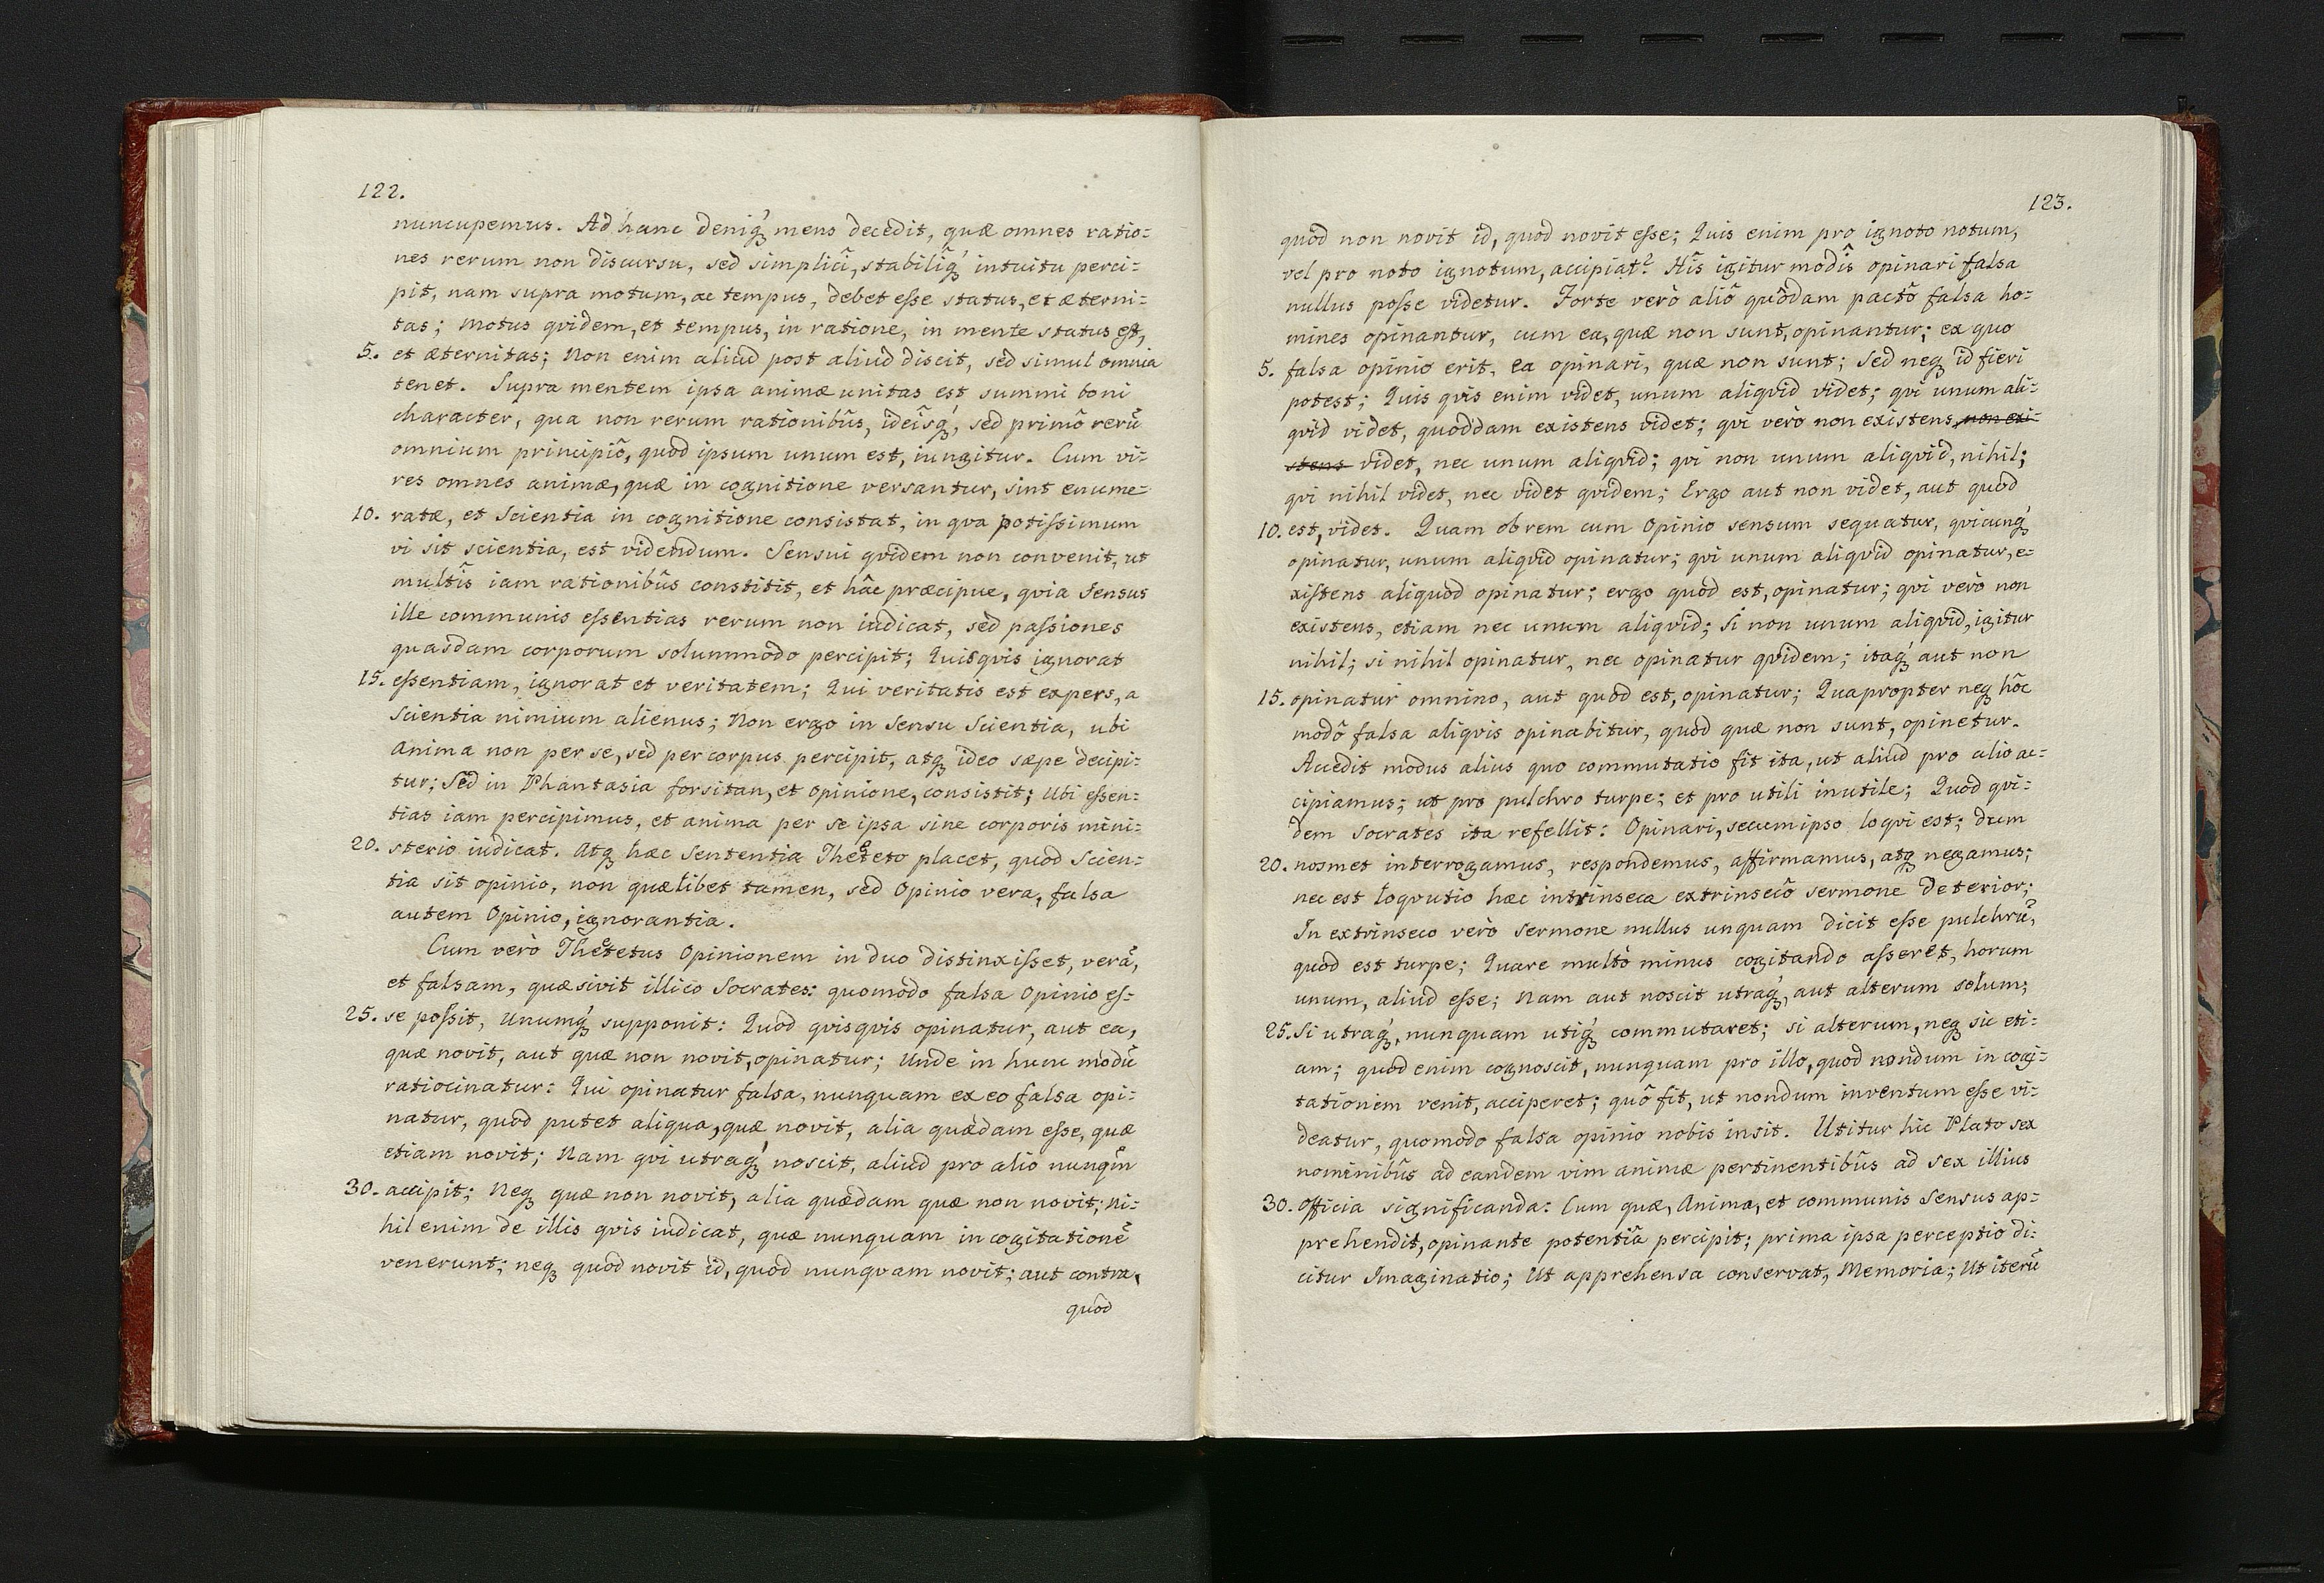 122.
nuncupemus. Ad hanc deniq́ꝫ mens decedit, quæ omnes ratio=
nes rerum non discursu, sed simplicî, stabiliq́ꝫ intuitu perci=
pit, nam supra motum, ac tempus, debet eſse status, et æterni=
tas; Motus qvidem, et tempus, in ratione, in mente status est,
5. et æternitas; Non enim aliud post aliud discit, sed simul omnia
tenet. Supra mentem ipsa animæ unitas est summi boni
character, qua non rerum rationibûs, ideîsq́ꝫ, sed primô rerũ
omnium principiô, quod ipsum unum est, iungitur. Cum vi=
res omnes animæ, quæ in cognitione versantur, sint enume=
10. ratæ, et Scientia in cognitione consistat, in qva potiſsimum
vi sit scientia, est videndum. Sensui qvidem non convenit, ut
multîs iam rationibûs constitit, et hâc præcipue, qvia Sensus
ille communis eſsentias rerum non iudicat, sed paſsiones
quasdam corporum solummodo percipit; Quisqvis ignorat
15. eſsentiam, ignorat et veritatem; Qui veritatis est expers, a
Scientia nimium alienus; Non ergo in Sensu Scientia, ubi
Anima non per se, sed per corpus percipit, atqꝫ ideo sæpe decipi=
tur; Sed in Phantasia forsitan, et Opinione, consistit; Ubi eſsen=
tias iam percipimus, et anima per se ipsa sine corporis mini=
20. sterio iudicat. Atqꝫ hæc Sententia Theeteto placet, quod Scien=
tia sit opinio, non quælibet tamen, sed Opinio vera, falsa
autem Opinio, ignorantia.
Cum verò Theetetus Opinionem in duo distinxiſset, verã,
et falsam, quæsivit illico Socrates: quomodo falsa Opinio eſ=
25. se poſsit, Unumq́ꝫ supponit: Quod qvisqvis opinatur, aut ea,
quæ novit, aut quæ non novit, opinatur; Unde in hunc modũ
ratiocinatur: Qui opinatur falsa, nunquam ex eo falsa opi=
natur, quod putet aliqua, quæ novit, alia quædam eſse, quæ
etiam novit; Nam qvi utraq́ꝫ noscit, aliud pro alio nunqm̃
30. accipit; Neqꝫ quæ non novit, alia quædam quæ non novit; Ni=
hil enim de illis qvis iudicat, quæ nunquam in cogitationẽ
venerunt; neqꝫ quod novit id, quod nunqvam novit; aut contra,
quod
123.
quod non novit id, quod novit eſse; Quis enim pro ignoto notum,
vel pro noto ignotum, accipiat? Hîs igitur modîs opinari falsa
nullus poſse videtur. Forte verò aliô quôdam pactô falsa ho=
mines opinantur, cum ea, quæ non sunt, opinantur; ex quo
5. falsa opinio erit, ea opinari, quæ non sunt; Sed neqꝫ id fieri
potest; Quis qvis enim videt, unum aliqvid videt; qvi unum ali=
qvid videt, quoddam existens videt; qvi verò non existens, non exi=
stens videt, nec unum aliqvid; qvi non unum aliqvid, nihil;
qvi nihil videt, nec videt qvidem; Ergo aut non videt, aut quod
10. est, videt. Quam ob rem cum Opinio sensum sequatur, qvicunq́ꝫ
opinatur, unum aliqvid opinatur; qvi unum aliqvid opinatur, e=
xistens aliquod opinatur; ergo quod est, opinatur; qvi verò non
existens, etiam nec unum aliqvid; Si non unum aliqvid, igitur
nihil; si nihil opinatur, nec opinatur qvidem; itaq́ꝫ aut non
15. opinatur omnino, aut quod est, opinatur; Quapropter neqꝫ hôc
modô falsa aliqvis opinabitur, quod quæ non sunt, opinetur.
Accedit modus alius quo commutatio fit ita, ut aliud pro alio ac=
cipiamus; ut pro pulchro turpe; et pro utili inutile; Quod qvi=
dem Socrates ita refellit: Opinari, secum ipso loqvi est; dum
20. nosmet interrogamus, respondemus, affirmamus, atqꝫ negamus;
nec est loqvutio hæc intrinseca extrinsecô sermone deterior;
In extrinseco verò Sermone nullus unquam dicit eſse pulchrũ,
quod est turpe; Quare multò minus cogitando aſseret, horum
unum, aliud eſse; Nam aut noscit utraq́ꝫ, aut alterum solum;
25. Si utraq́ꝫ, nunquam utiq́ꝫ commutaret; si alterum, neqꝫ sic eti=
am; quod enim cognoscit, nunquam pro illo, quod nondum in cogi=
tationem venit, acciperet; quô fit, ut nondum inventum eſse vi=
deatur, quomodo falsa opinio nobis insit. Utitur hic Plato sex
nominibûs ad eandem vim animæ pertinentibûs ad sex illius
30. officia significanda: Cum quæ, Anima, et communis Sensus ap=
prehendit, opinante potentiâ percipit; prima ipsa perceptio di=
citur Imaginatio; Ut apprehensa conservat, Memoria; Ut iterũ